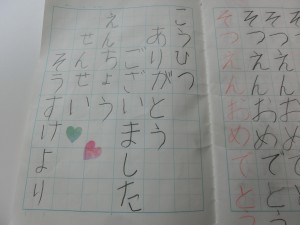 そつえんおめでとう
そつえんおめでとう
そつえんおめでとう
こうひつ
ありがとう
ございました
えんちょう
せんせい
そうすけより